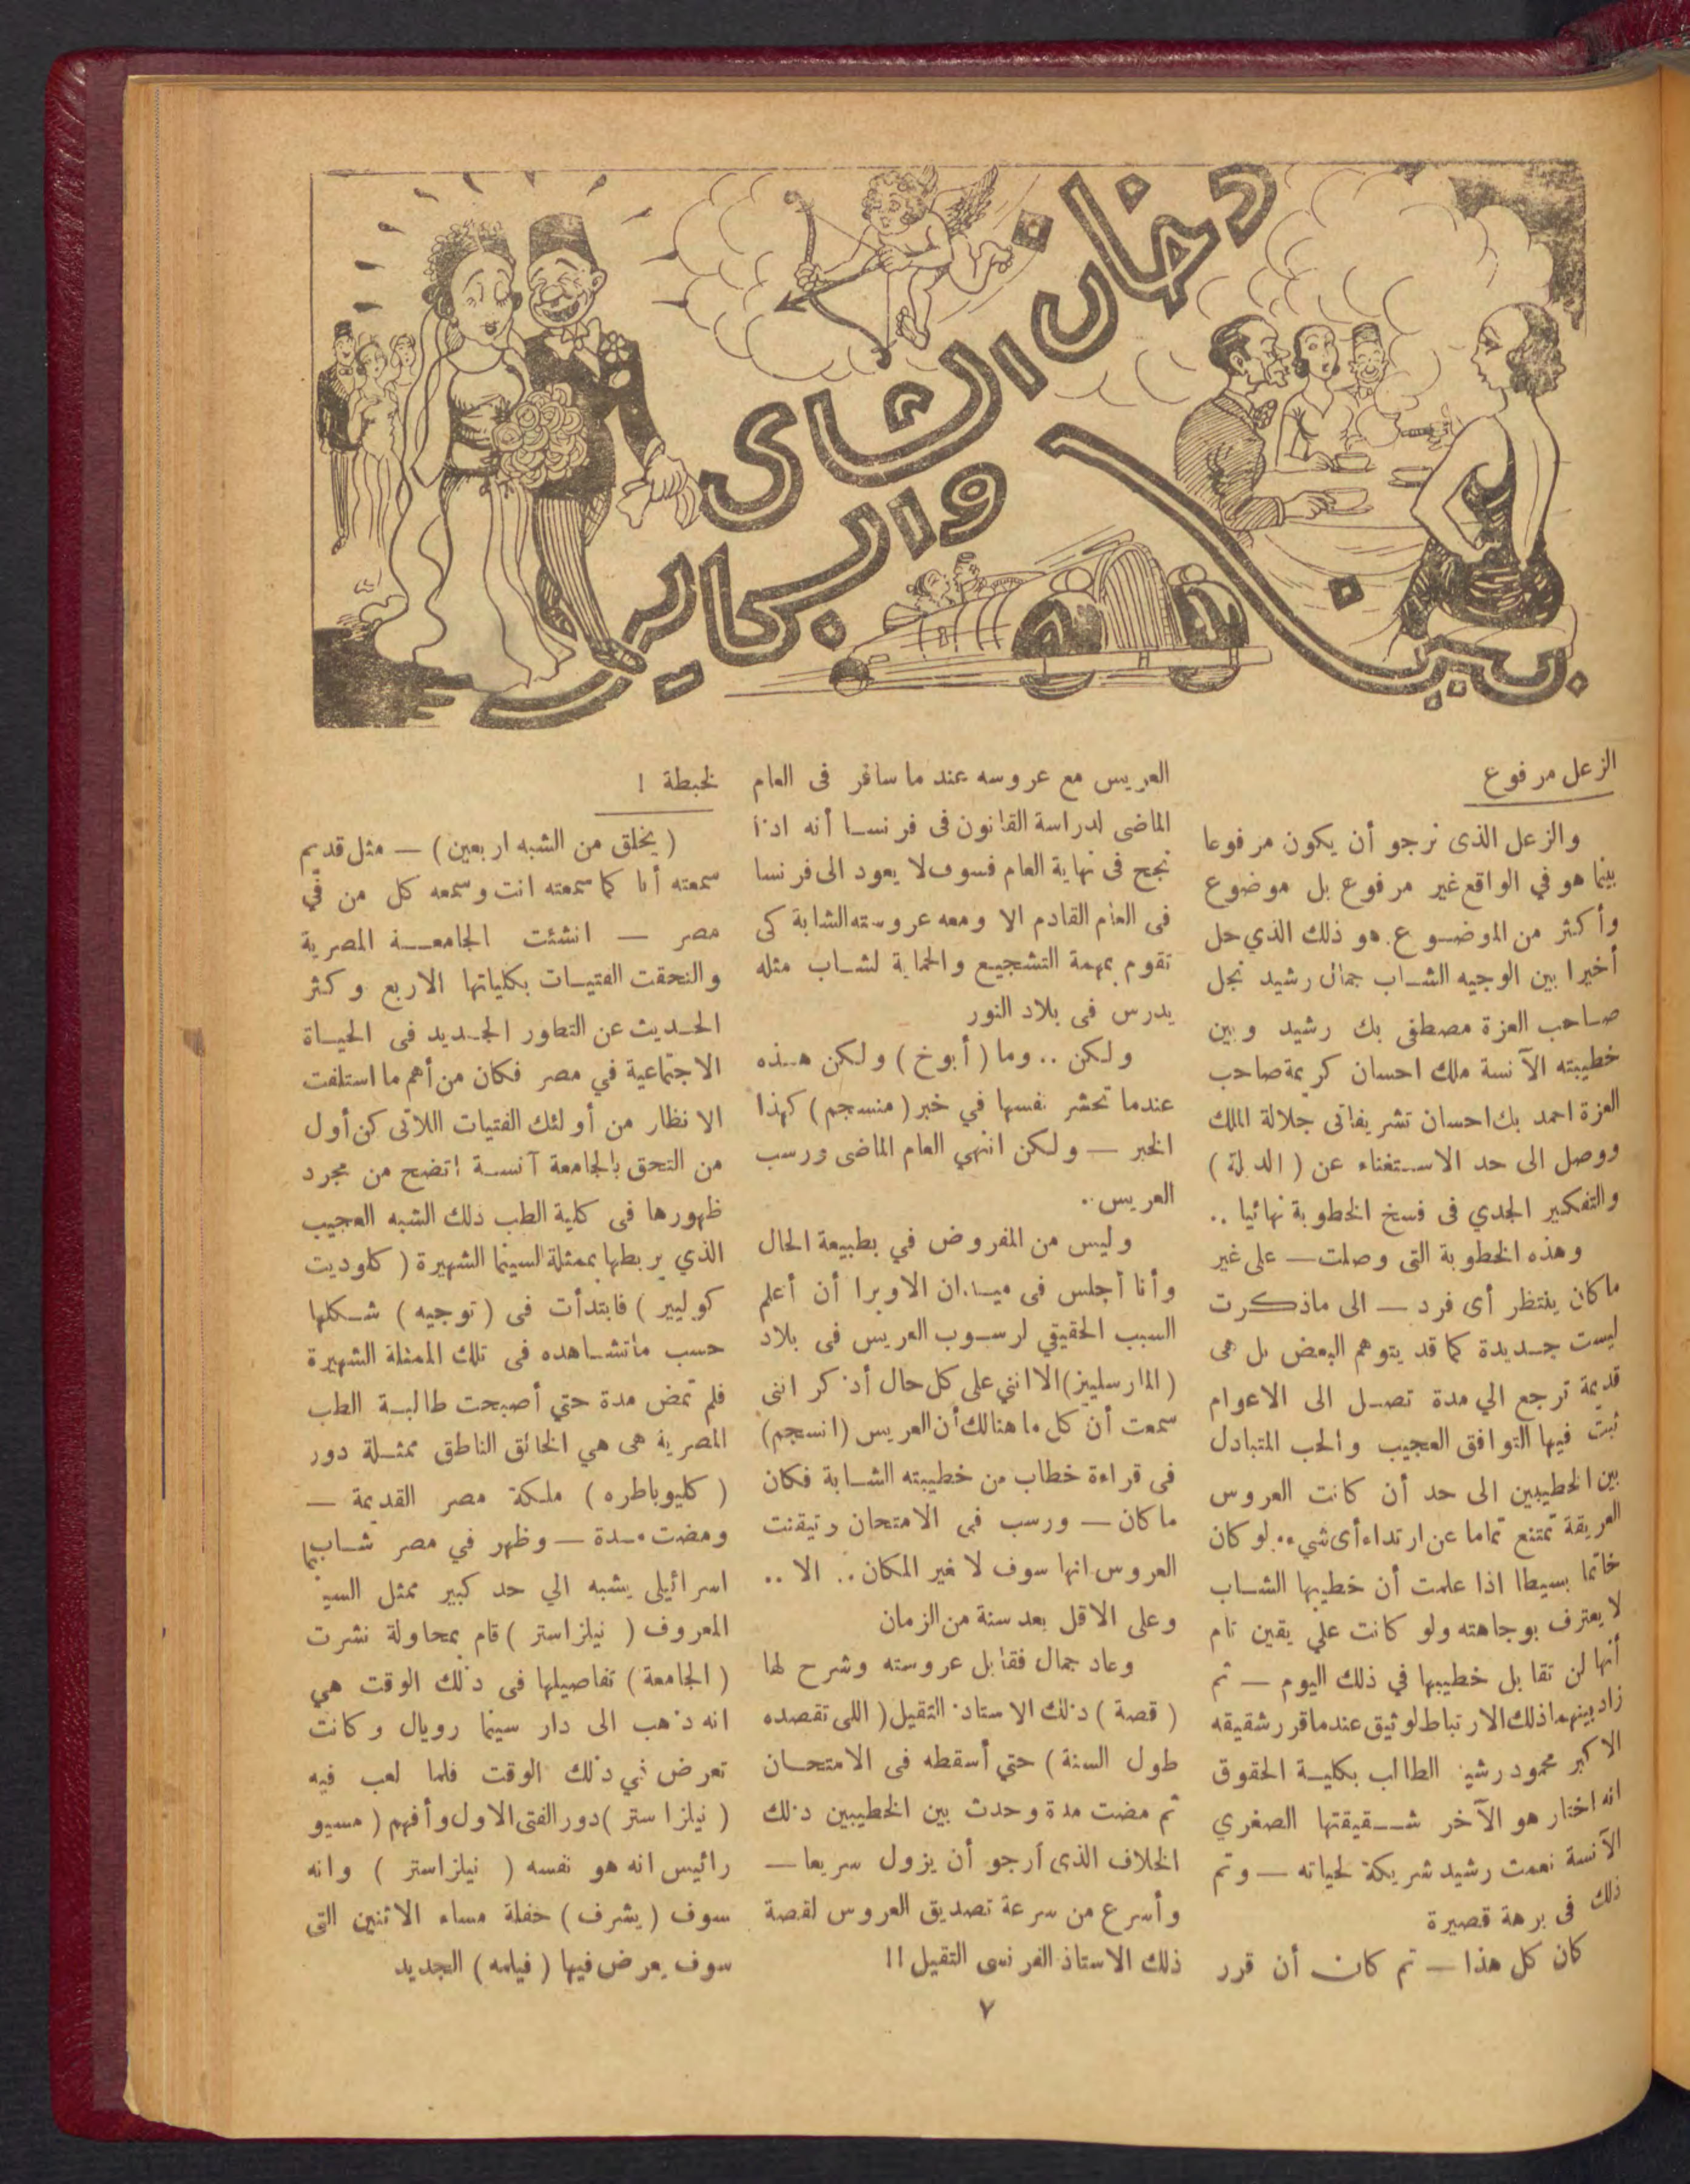 بين
دخان الشاى
والسكاير
الزعل مرفوع
والزعل الذى نرجو أن يكون مرفوعا
بينما هو في الواقع غير مرفوع بل موضوع
وأكثر من الموضوع . هو ذلك الذي حل
أخيرا بين الوجيه الشاب جمال رشيد نجل
صاحب العزة مصطفى بك رشيد وبين
خطيبته الآنسة ملك احسان كريمة صاحب
العزة احمد بك احسان تشريفاتى جلالة الملك
ووصل الى حد الاستغناء عن ( الدبلة )
والتفكير الجدي فى فسخ الخطوبة نهائيا ..
وهذه الخطوبة التى وصلت — على غير
ما كان ينتظر أى فرد — الى ماذكرت
ليست جديدة كما قد يتوهم البعض بل هى
قديمة ترجع الي مدة تصل الى الاعوام
ثبت فيها التوافق العجيب والحب المتبادل
بين الخطيبين الى حد أن كانت العروس
العريقة تمتنع تماما عن ارتداء أى شىء .. لو كان
خاتما بسيطا اذا علمت أن خطيبها الشاب
لا يعترف بوجاهته ولو كانت علي يقين تام
أنها لن تقابل خطيبها في ذلك اليوم — ثم
زاد بينهما ذلك الارتباط لوثيق عندما قرر شقيقه
الاكبر محمود رشيد الطالب بكلية الحقوق
انه اختار هو الآخر شقيقتها الصغري
الآنسة نعمت رشيد شريكة لحياته — وتم
ذلك فى برهة قصيرة
كان كل هذا — ثم كان أن قرر
العريس مع عروسه عند ما سافر فى العام
الماضى لدراسة القانون فى فرنسا أنه اذا
نجح فى نهاية العام فسوف لا يعود الى فرنسا
فى العام القادم الا ومعه عروسته الشابة كى
تقوم بمهمة التشجيع والحماية لشاب مثله
يدرس فى بلاد النور
ولكن .. وما ( أبوخ ) ولكن هذه
عندما تحشر نفسها في خبر ( منسجم ) كهذا
الخبر — ولكن انتهي العام الماضى ورسب
العريس ..
وليس من المفروض في بطبيعة الحال
وأنا أجلس فى ميدان الاوبرا أن أعلم
السبب الحقيقي لرسوب العريس فى بلاد
( المارسليز ) الا انني على كل حال أذكر اننى
سمعت أن كل ما هنالك أن العريس ( انسجم )
فى قراءة خطاب من خطيبته الشابة فكان
ما كان — ورسب فى الامتحان وتيقنت
العروس انها سوف لا تغير المكان .. الا ..
وعلى الاقل بعد سنة من الزمان
وعاد جمال فقابل عروسته وشرح لها
( قصة ) ذلك الاستاذ التقيل ( اللى تقصده
طول السنة ) حتي أسقطه فى الامتحان
ثم مضت مدة وحدث بين الخطيبين ذلك
الخلاف الذى أرجو أن يزول سريعا —
وأسرع من سرعة تصديق العروس لقصة
ذلك الاستاذ الفرنسى التقيل !!
لخبطة !
( يخلق من الشبه اربعين ) — مثل قديم
سمعته أنا كما سمعته انت وسمعه كل من في
مصر — انشئت الجامعة المصرية
والتحقت الفتيات بكلياتها الاربع وكثر
الحديث عن التطور الجديد فى الحياة
الاجتماعية في مصر فكان من أهم ما استلفت
الانظار من أولئك الفتيات اللاتى كن أول
من التحق بالجامعة آنسة اتضح من مجرد
ظهورها فى كلية الطب ذلك الشبه العجيب
الذي يربطها بممثلة السينما الشهيرة ( كلوديت
كولبير ) فابتدأت فى ( توجيه ) شكلها
حسب ماتشاهده فى تلك الممثلة الشهيرة
فلم تمض مدة حتي أصبحت طالبة الطب
المصرية هى هي الخالق الناطق ممثلة دور
( كليوباطره ) ملكة مصر القديمة —
ومضت مدة — وظهر في مصر شاب
اسرائيلى يشبه الي حد كبير ممثل السينما
المعروف ( نيلز استر ) قام بمحاولة نشرت
( الجامعة ) تفاصيلها فى ذلك الوقت هي
انه ذهب الى دار سينما رويال وكانت
تعرض في ذلك الوقت فلما لعب فيه
( نيلز استر ) دور الفتى الاول وأفهم ( مسيو
رائيس انه هو نفسه ( نيلز استر ) وانه
سوف ( يشرف ) حفلة مساء الاثنين التى
سوف يعرض فيها ( فيلمه ) الجديد
٧